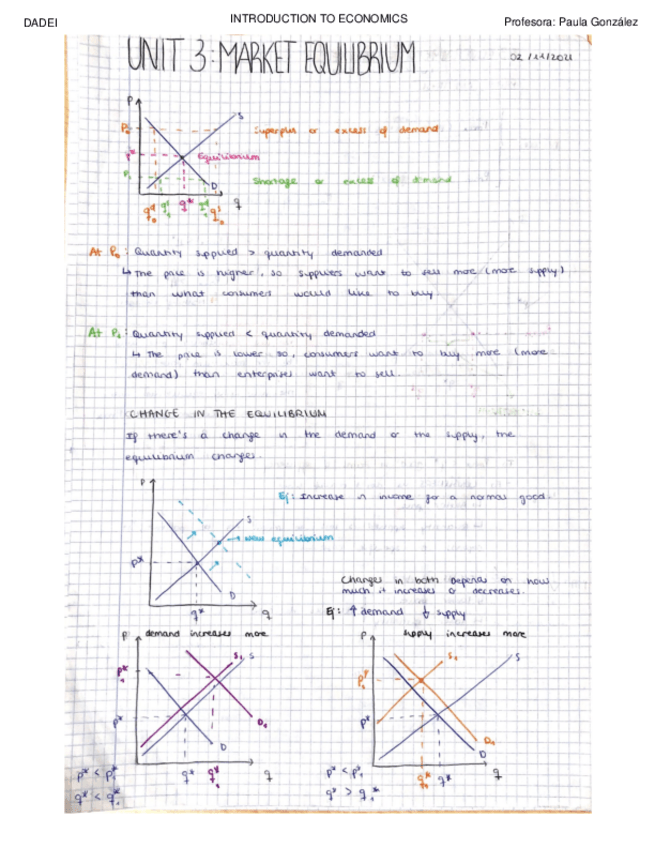 DADEI
INTRODUCTION TO ECONOMICS
Profesora: Paula González
UNIT 3: MARKET EQUILIBRIUM
02/11/2021
P
S
P₀
Superplus or excess of demand
P*
Equilibrium
P₁
Shortage or excess of demand
D
q
q*
At P₀: Quantity supplied > quantity demanded
↳ The price is higher, so suppliers want to sell more (more supply)
than what consumers would like to buy
At P₁: Quantity supplied < quantity demanded
↳ The price is lower so, consumers want to buy more (more
demand) than enterprises want to sell.
CHANGE IN THE EQUILIBRIUM
If there's a change in the demand or the supply, the
equilibrium changes.
P
Ej: Increase in income for a normal good.
S
→ new equilibrium
P*
D
q*
q
Changes in both depends on how
much it increases or decreases.
Ej: ↑ demand ↓ supply
P
demand increases more
S₁
S
P*₁
P*
D₁
D
q*
q*₁
q
P* < P*₁
q* < q*₁
P
supply increases more
S₁
S
P*₁
P*
D₁
D
q*₁
q*
q
P* < P*₁
q* > q*₁